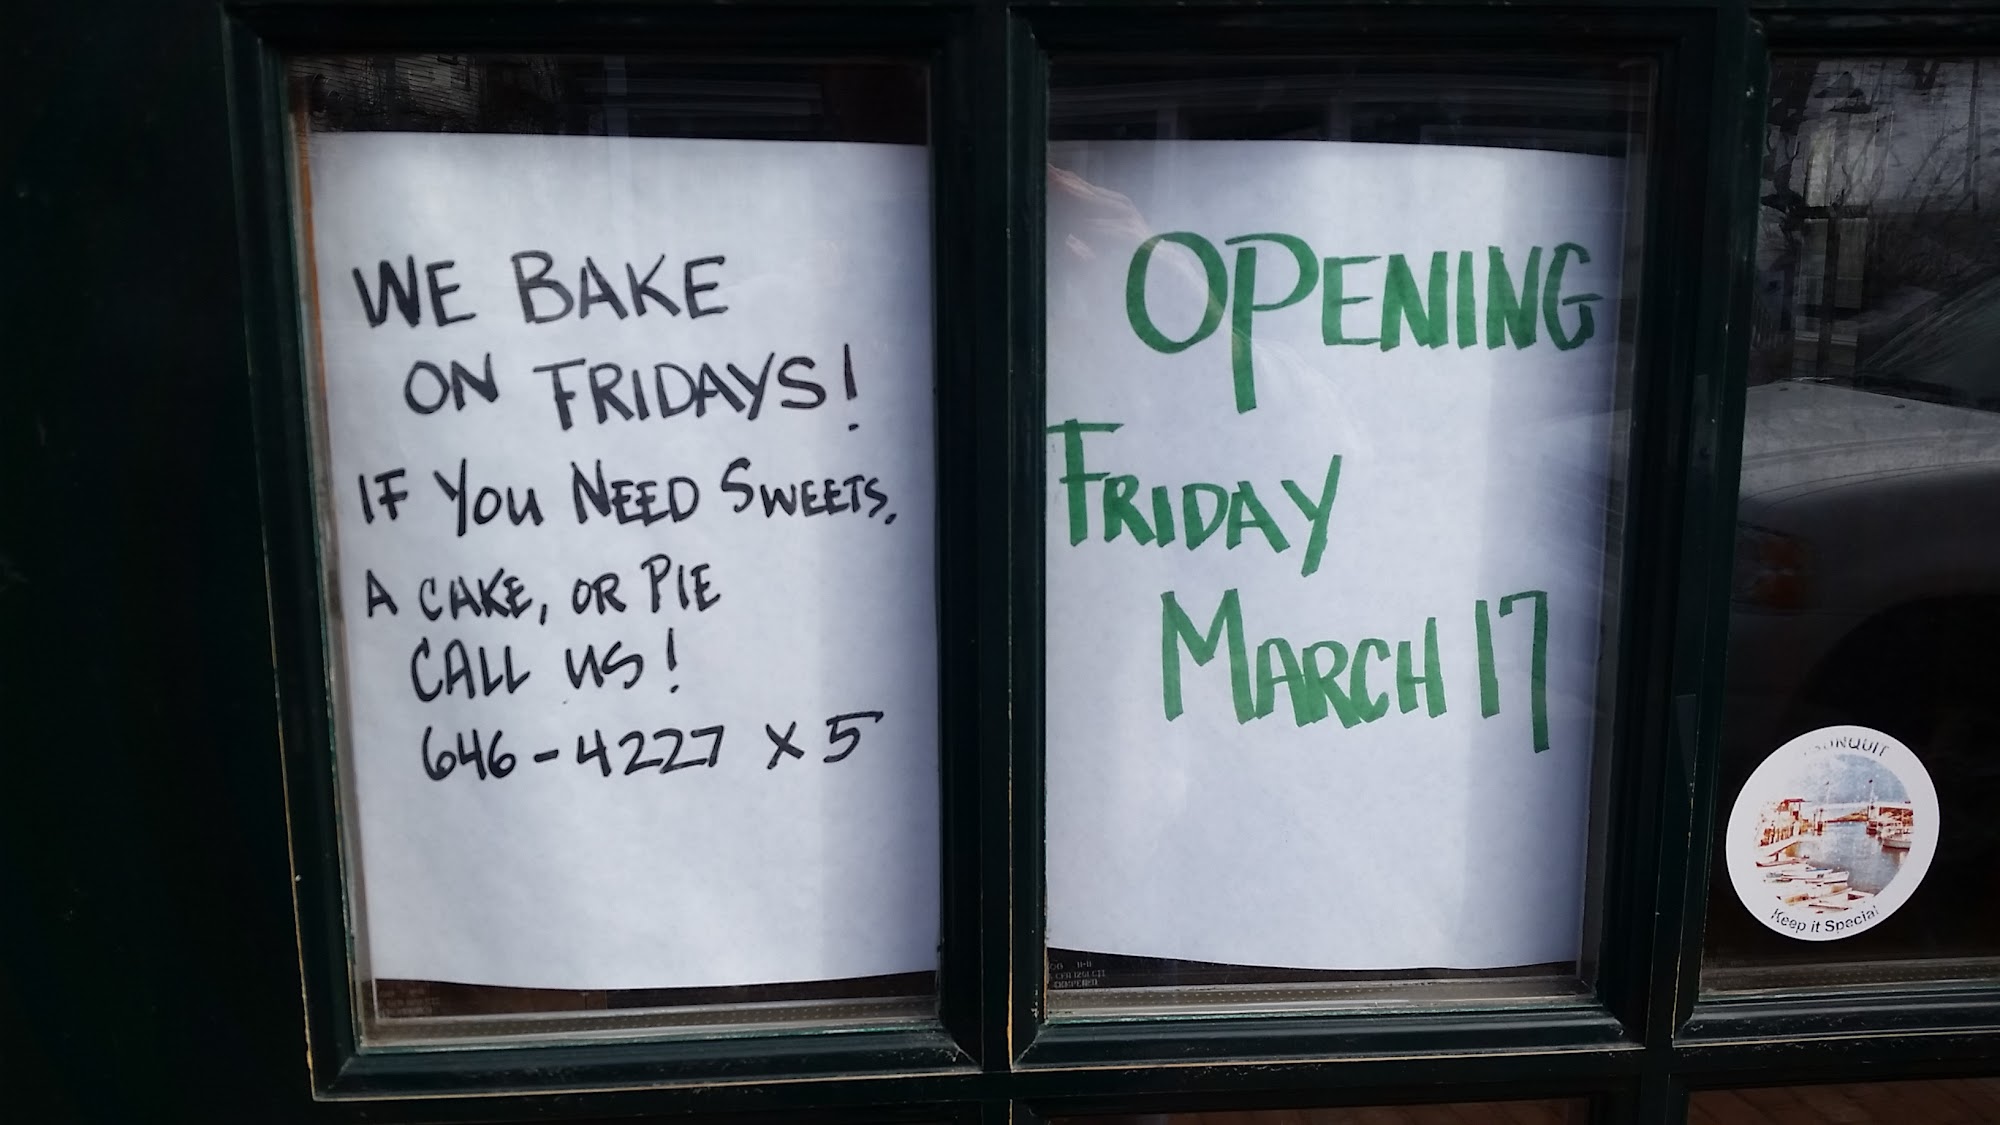 WE BAKE
ON FRIDAYS!
IF YOU NEED SWEETS,
A CAKE, OR PIE
CALL US!
646-4227 X 5
OPENING
FRIDAY
MARCH 17
Keep it Special